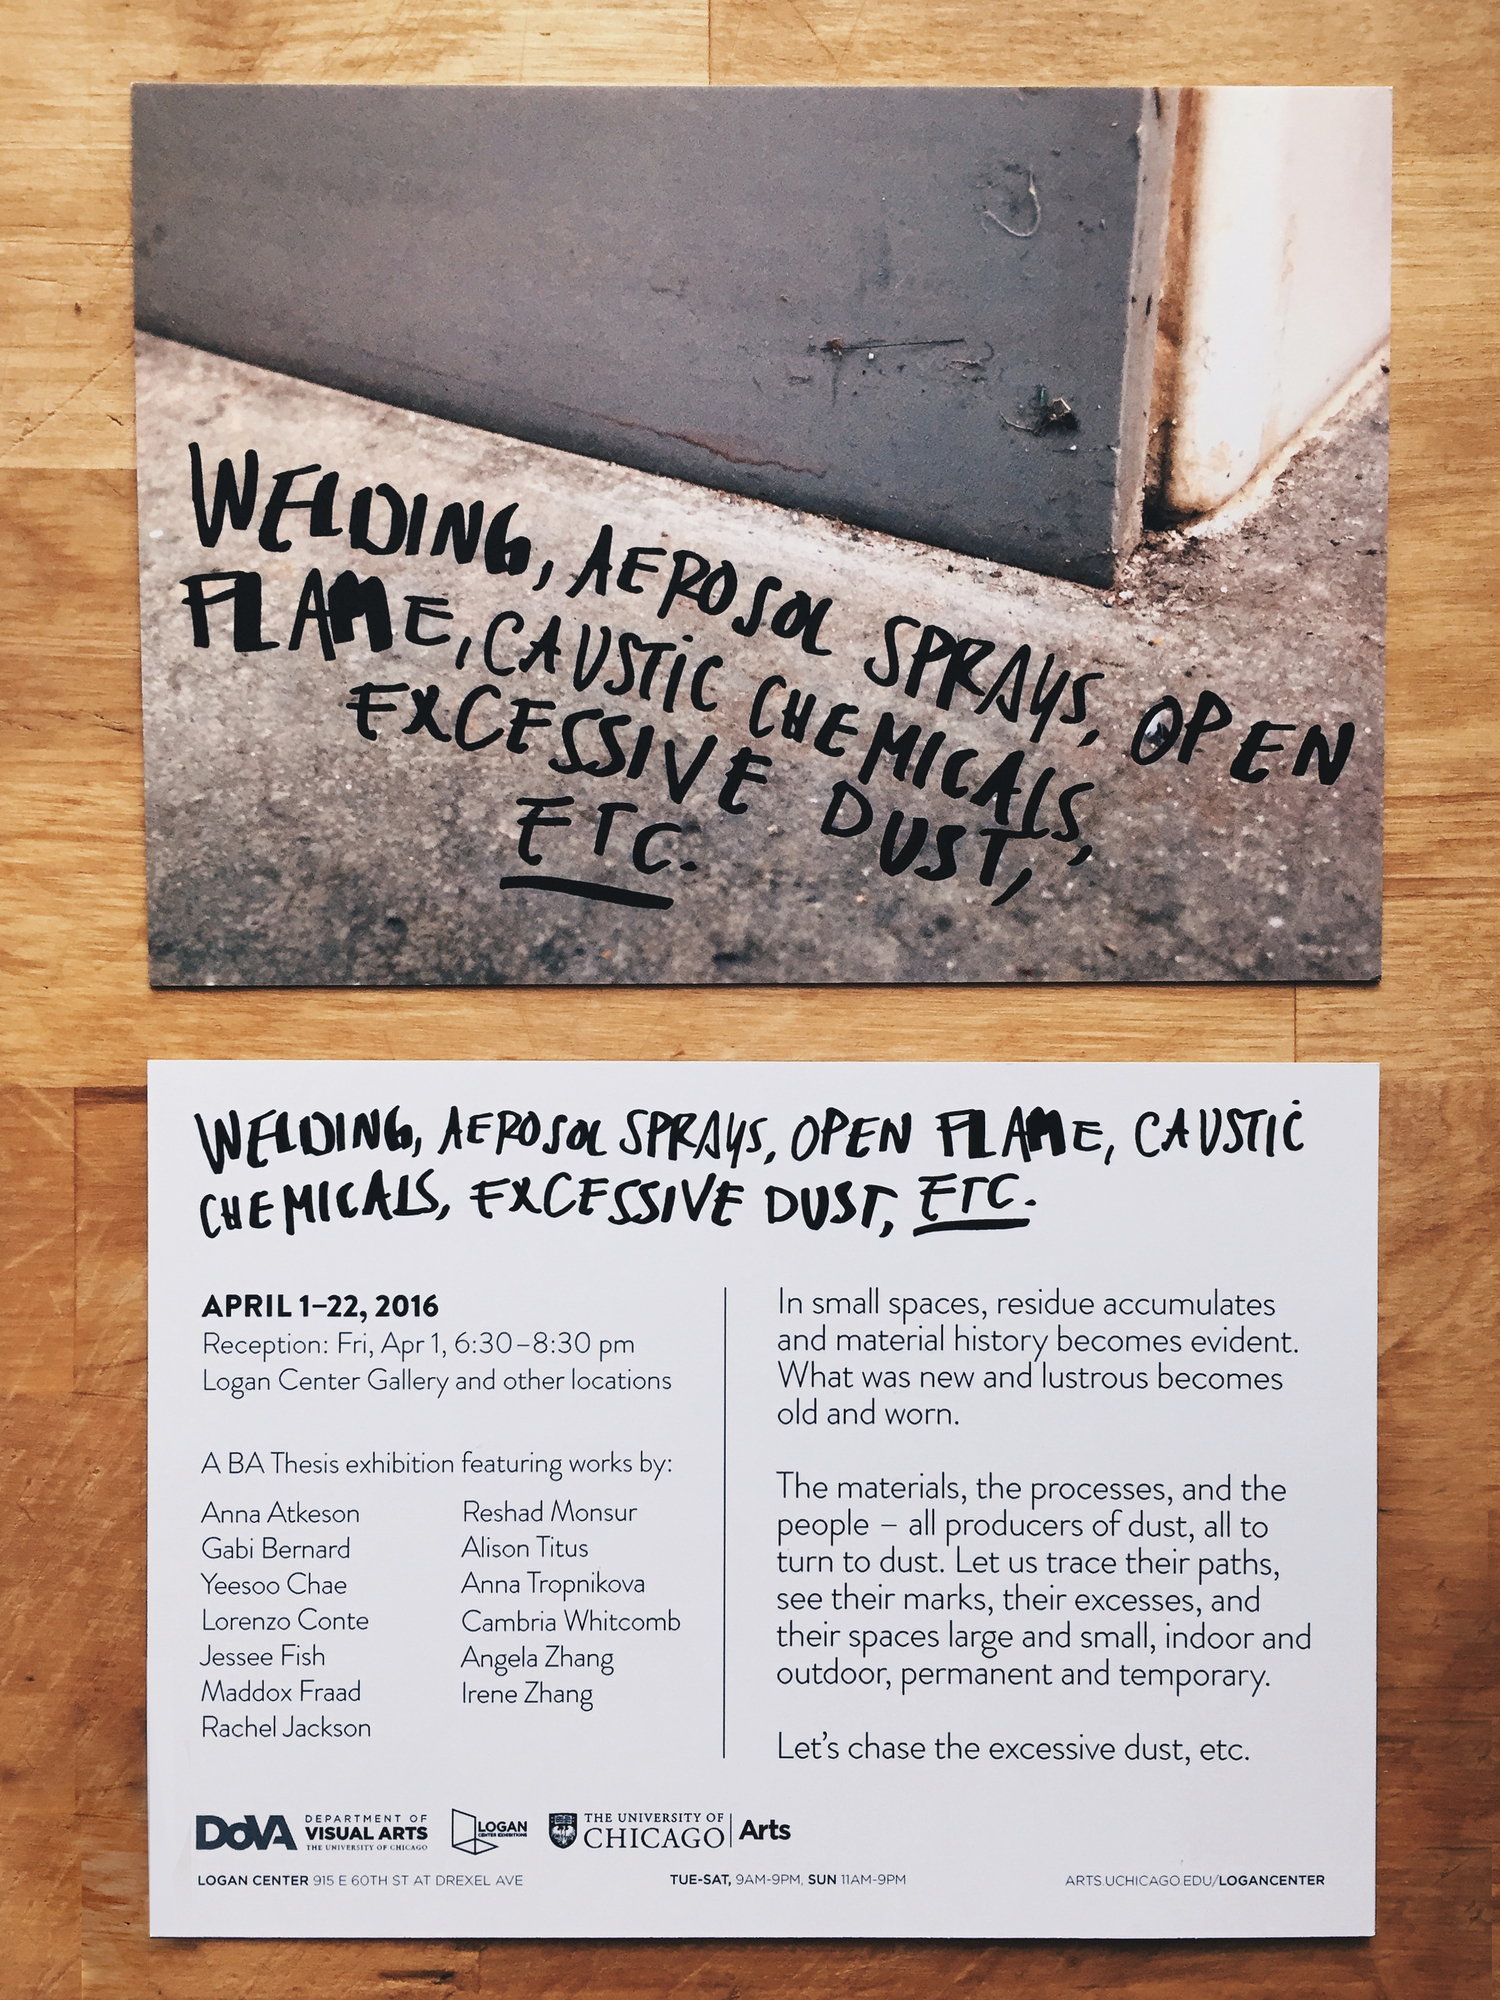 WELDING, AEROSOL SPRAYS, OPEN
FLAME, CAUSTIC CHEMICALS,
EXCESSIVE DUST,
ETC.
WELDING, AEROSOL SPRAYS, OPEN FLAME, CAUSTIC
CHEMICALS, EXCESSIVE DUST, ETC.
APRIL 1–22, 2016
Reception: Fri, Apr 1, 6:30–8:30 pm
Logan Center Gallery and other locations
A BA Thesis exhibition featuring works by:
Anna Atkeson
Gabi Bernard
Yeesoo Chae
Lorenzo Conte
Jessee Fish
Maddox Fraad
Rachel Jackson
Reshad Monsur
Alison Titus
Anna Tropnikova
Cambria Whitcomb
Angela Zhang
Irene Zhang
In small spaces, residue accumulates
and material history becomes evident.
What was new and lustrous becomes
old and worn.
The materials, the processes, and the
people – all producers of dust, all to
turn to dust. Let us trace their paths,
see their marks, their excesses, and
their spaces large and small, indoor and
outdoor, permanent and temporary.
Let's chase the excessive dust, etc.
DoVA
DEPARTMENT OF
VISUAL ARTS
THE UNIVERSITY OF CHICAGO
LOGAN
CENTER EXHIBITIONS
THE UNIVERSITY OF
CHICAGO
Arts
LOGAN CENTER 915 E 60TH ST AT DREXEL AVE
TUE-SAT, 9AM-9PM, SUN 11AM-9PM
ARTS.UCHICAGO.EDU/LOGANCENTER